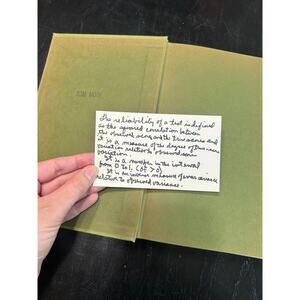 The reliability of a test is defined
as the squared correlation between
the observed score and the true score and
it is a measure of the degree of true score
variation relative to observed score
variation.
It is a number in the interval
from 0 to 1, (σ² > 0)
It is an inverse measure of error variance
relative to observed variance.